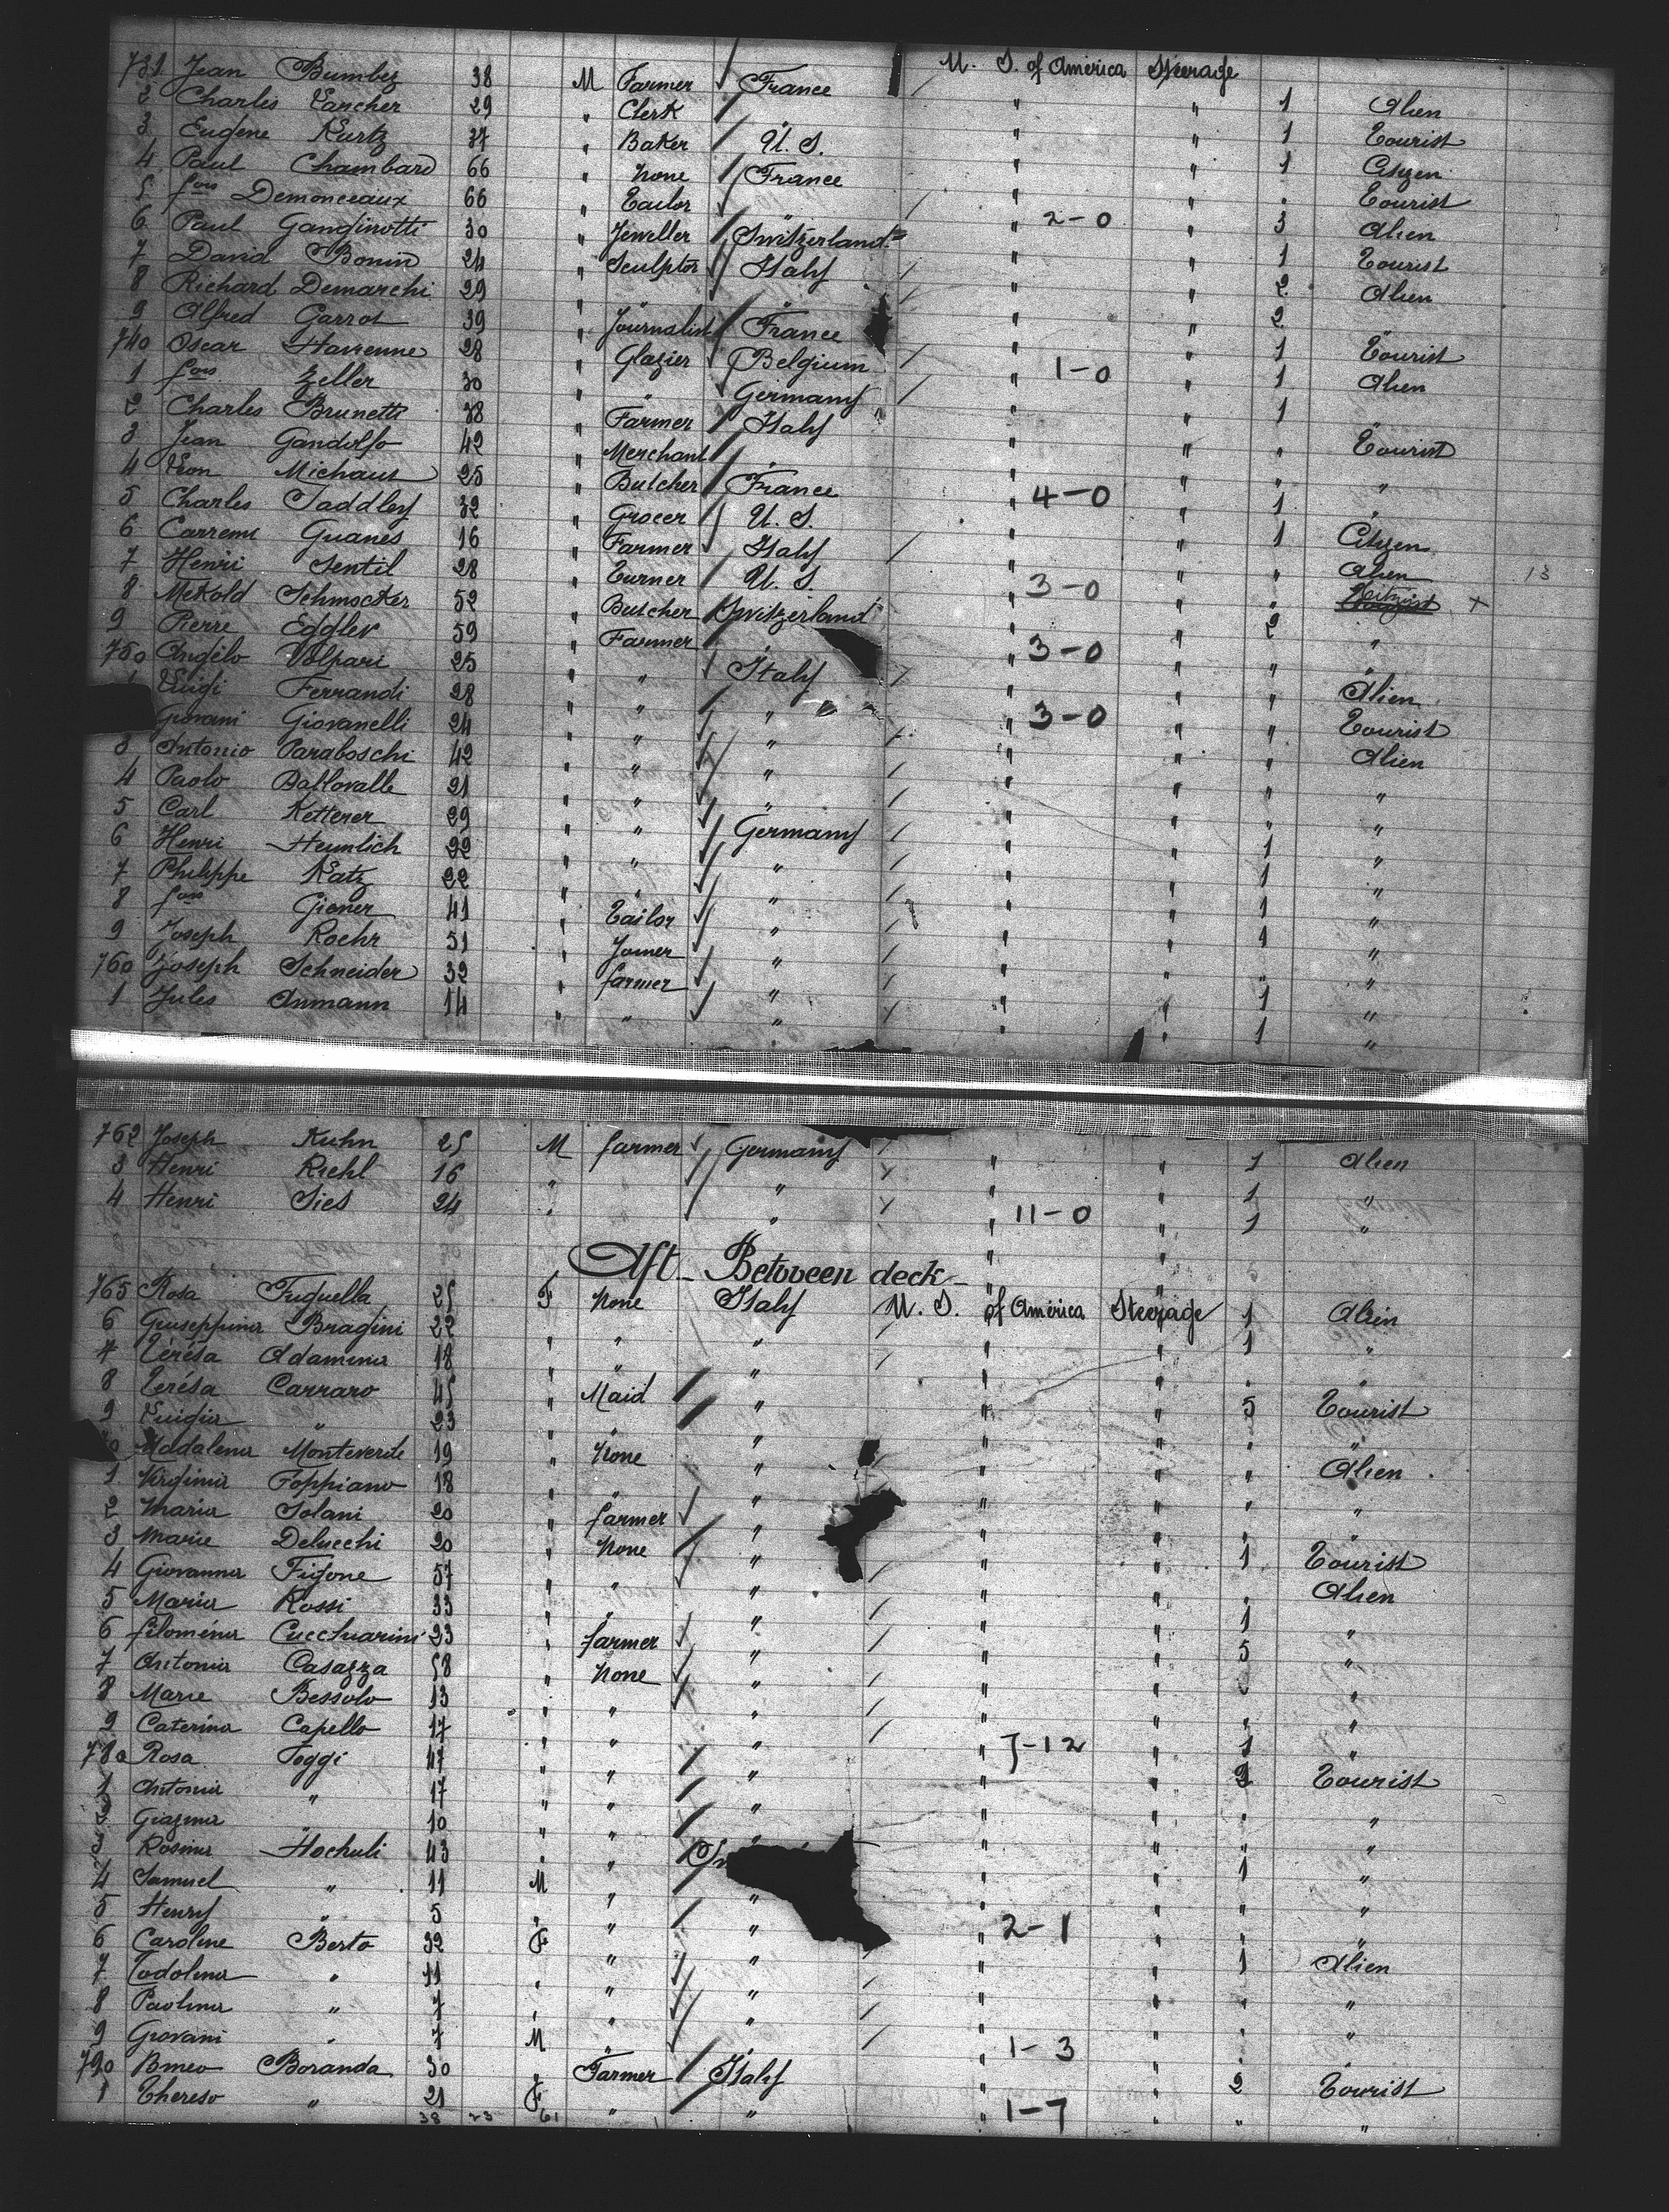 731 Jean Bumbez 38 M Farmer France U. S. of America Steerage 1 Alien
2 Charles Earcher 29 " Clerk " " " 1 Tourist
3 Eugene Kurtz 37 " Baker U. S. " " 1 Citizen
4 Paul Chambard 66 " None France " " " Tourist
5 fois Demonceaux 66 " Tailor " " 2-0 " 3 Alien
6 Paul Gandinotti 30 " Jeweller Switzerland " " 1 Tourist
7 David Bonin 24 " Sculptor Italy " " 2 Alien
8 Richard Demarchi 29 " " " " " 2 "
9 Alfred Garrot 39 " Journalist France " " 1 Tourist
740 Oscar Havenne 28 " Glazier Belgium " 1-0 " 1 Alien
1 fois Zeller 30 " " Germany " " 1 "
2 Charles Brunetti 38 " Farmer Italy " " " Tourist
3 Jean Gandolfo 42 " Merchant " " " " "
4 Léon Michaut 25 " Butcher France " 4-0 " 1 "
5 Charles Saddley 32 " Grocer U. S. " " 1 Citizen
6 Carreme Guanes 16 " Farmer Italy " " " Alien 13
7 Henri Sentil 28 " Turner U. S. " 3-0 " " Citizen X
8 Metkold Schmocker 52 " Butcher Switzerland " " 2 "
9 Pierre Eggler 59 " Farmer " " 3-0 " " "
750 Angélo Volpari 25 " " Italy " " " Alien
Luigi Ferrandi 28 " " " " 3-0 " " Tourist
Giovani Giovanelli 24 " " " " " " Alien
3 Antonio Paraboschi 42 " " " " " " "
4 Paolo Ballovalle 21 " " " " " " "
5 Carl Ketterer 29 " " Germany " " 1 "
6 Henri Heimlich 22 " " " " " 1 "
7 Philippe Katz 22 " " " " " 1 "
8 fois Giener 41 " Tailor " " " 1 "
9 Joseph Roehr 51 " Joiner " " " " "
760 Joseph Schneider 32 " farmer " " " 1 "
1 Jules Anmann 14 " " " " " 1 "
762 Joseph Kuhn 25 M farmer Germany " " 1 Alien
3 Henri Riehl 16 " " " " " 1 "
4 Henri Sies 24 " " " " 11-0 " 1 "
Aft - Between deck -
765 Rosa Fuguella 25 F None Italy U. S. of America Steerage 1 Alien
6 Giuseppina Bragini 22 " " " " " 1 "
7 Térésa Adamina 18 " " " " " " "
8 Térésa Carraro 45 " Maid " " " 5 Tourist
9 Luigia " 23 " " " " " " "
Madalena Monteverde 19 " None " " " " Alien
1 Virginia Foppiano 18 " " " " " " "
2 Maria Solani 20 " farmer " " " " "
3 Marie Delucchi 20 " None " " " 1 Tourist
4 Giovanna Figone 57 " " " " " " Alien
5 Maria Rossi 33 " " " " " 1 "
6 filoména Cucchiarini 23 " farmer " " " 5 "
7 Antonia Casazza 58 " None " " " "
8 Marie Bessolo 13 " " " " " " "
9 Caterina Capello 17 " " " " J-12 " 1 "
780 Rosa Foggi 47 " " " " " 2 Tourist
1 Antonia " 17 " " " " " " "
2 Giazma 10 " " " " " " "
3 Rosina Hochuli 43 " " " " 1 "
4 Samuel " 11 M " " " " " "
5 Henry " 5 " " " " 2-1 " " "
6 Caroline Berto 32 F " " " " 1 Alien
7 Lodolina " 11 " " " " " " "
8 Paolina " 7 " " " " " " "
9 Giovani " 7 M " " " 1-3 " " "
790 Bmeo Boranda 30 " Farmer Italy " " 2 Tourist
1 Thereso " 21 F " " " 1-7 " " "
38 23 61